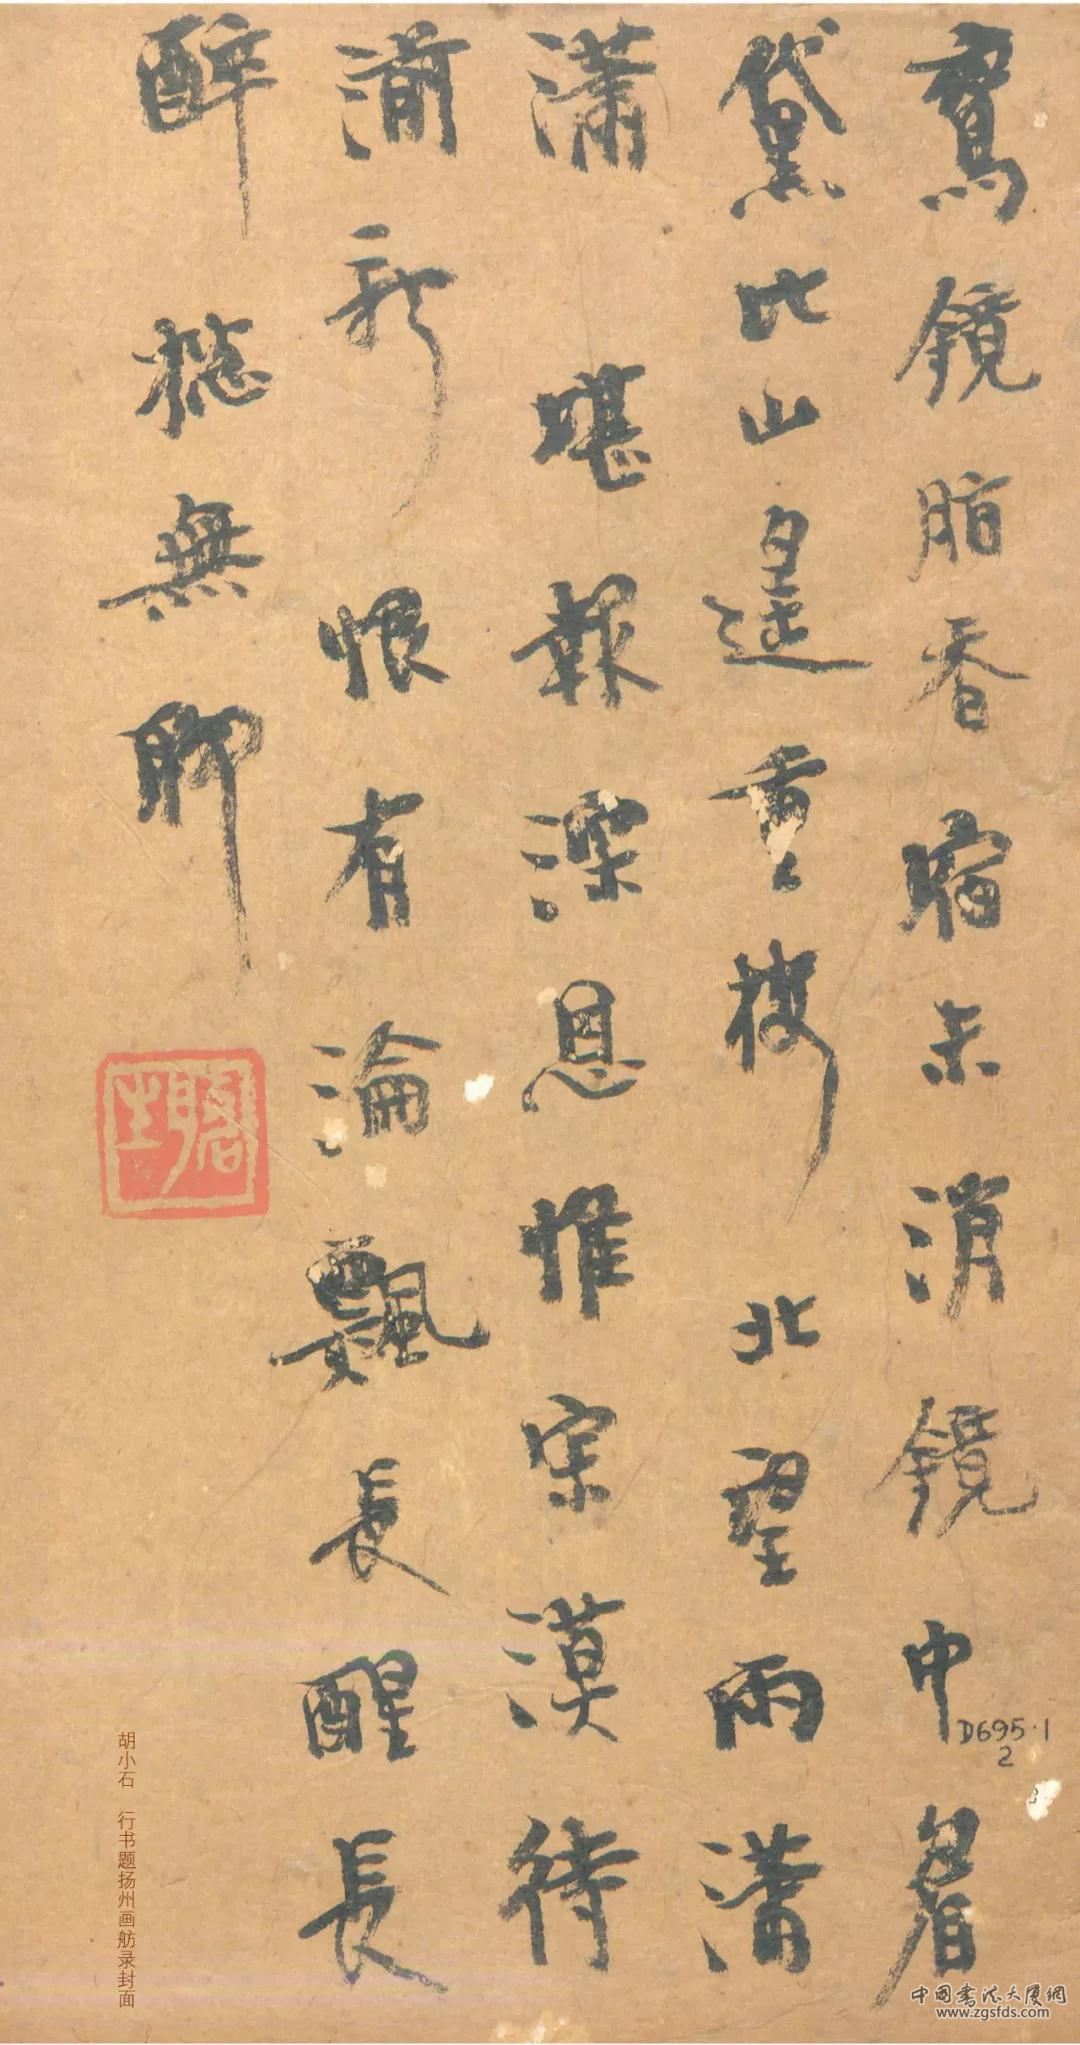 鏡脂香未消鏡中眉
黛比山遥重樓北望雨瀟
瀟堪報深恩惟寂漠待
湔新恨有淪飄長醒長
醉總無聊
D695·1
2
胡小石 行书题扬州画舫录封面
中国书法大厦網
www.zgsfds.com